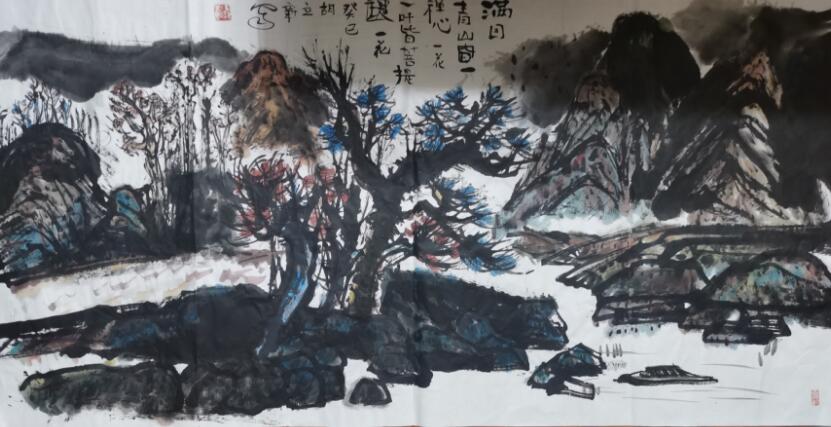 满目
青山一
禅心一花
一叶皆菩提
一花
癸巳
胡
立
新
写